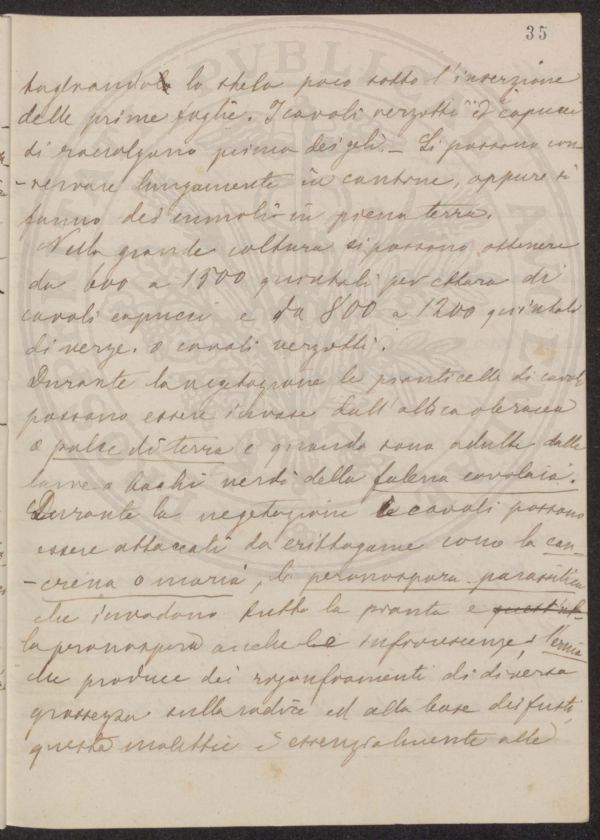 35
tagliandole lo stelo poco sotto l'inserzione
delle prime foglie. I cavoli verzotti e capucci
si raccolgano prima dei geli. Si possono con-
-servare lungamente in cantine, oppure si
fanno dei cumoli in piena terra.
Nella grande coltura si possono ottenere
da 600 a 1500 quintali per ettara di
cavoli capucci e da 800 a 1200 quintali
di verze o cavoli verzotti.
Durante la vegetazione le pianticelle di cavoli
possono essere invase dall'altica oleracea
o pulce di terra e quando sono adulte dalle
larve o bachi verdi della falena cavolaia.
Durante la vegetazione i cavoli possono
essere attaccati da crittogame como la can-
-crena o moria, la peronospora parasitica
che invadono tutta la pianta e
la peronospora anche le infiorescenze, l'ernia
che produce dei rigonfiamenti di diversa
grossezza sulla radice ed alla base dei fusti,
questa malattie è essenzialmente alle